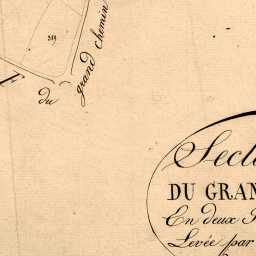 du grand chemin
Secti
DU GRAN
En deux
Levée par